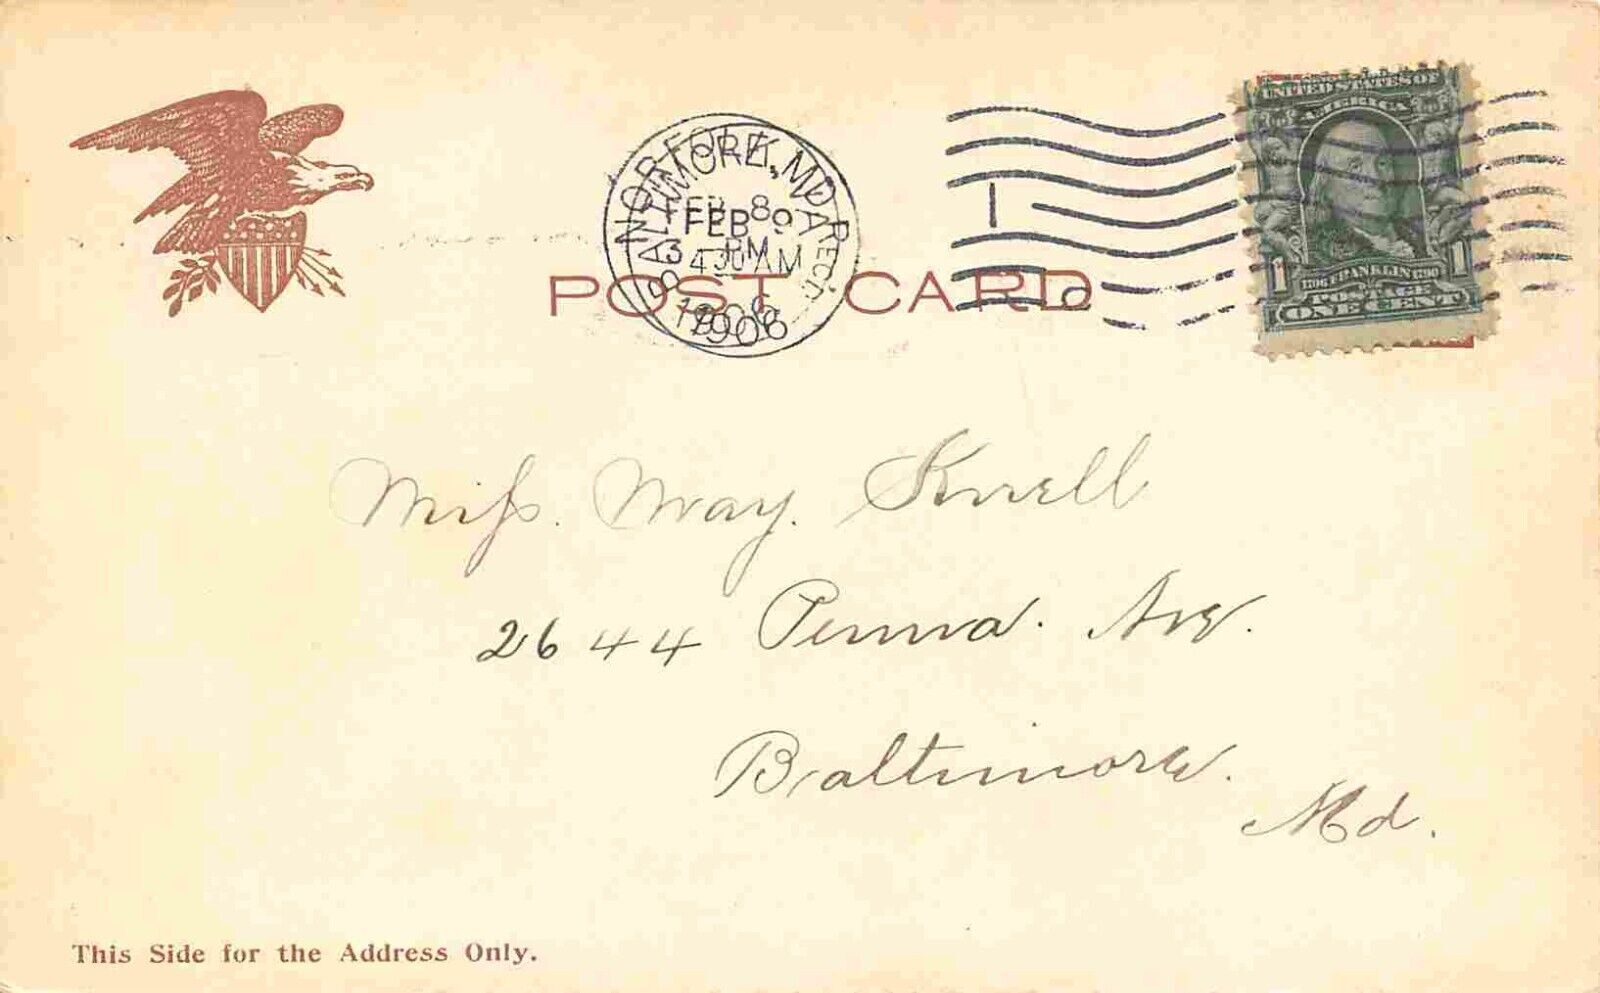 NORFOLK, VA
FEB 8
3 PM
1906
BALTIMORE, MD. REC'D.
FEB 9
4 30 AM
1906
1
UNITED STATES OF
AMERICA
1706 FRANKLIN 1790
POSTAGE
1 ONE CENT 1
POST CARD
Miss. May. Knell
2644 Penna. Ave.
Baltimore.
Md.
This Side for the Address Only.